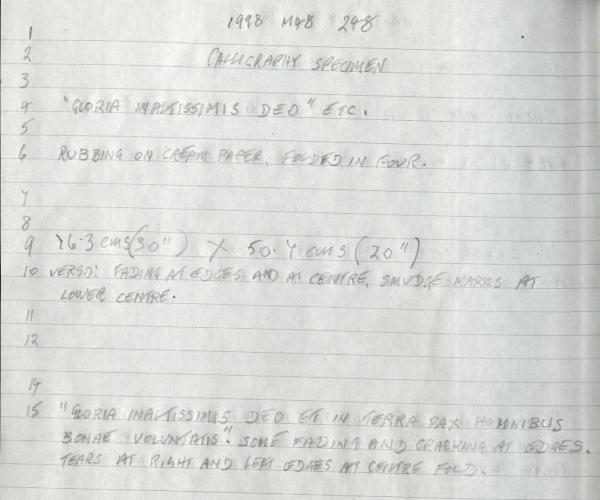 1998 M48 248
1
2 CALLIGRAPHY SPECIMEN
3
4 "GLORIA INALTISSIMIS DEO" ETC.
5
6 RUBBING ON CREAM PAPER, FOLDED IN FOUR.
7
8
9 76.3 cms (30") X 50.7 cms (20")
10 VERSO: FADING AT EDGES AND AT CENTRE, SMUDGE MARKS AT
LOWER CENTRE.
11
12
14
15 "GLORIA INALTISSIMIS DEO ET IN TERRA PAX HOMNIBUS
BONAE VOLUNTATIS". SOME FADING AND CRACKING AT EDGES.
TEARS AT RIGHT AND LEFT EDGES AT CENTRE FOLD.